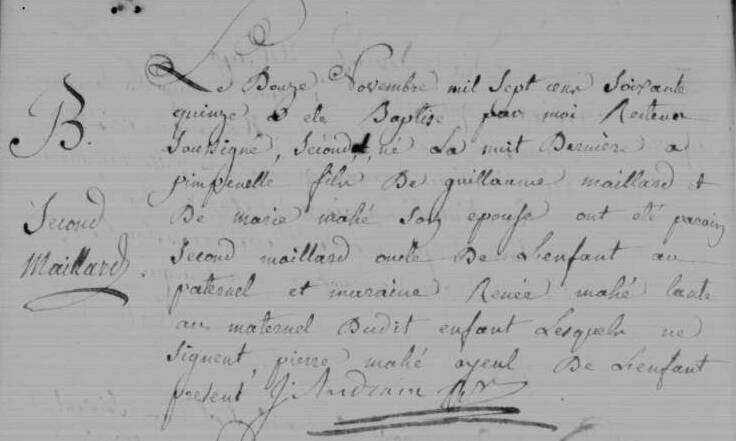 B.
Second
Maillard.
Le Douze Novembre mil Sept cens Soixante
quinze a ete Baptisé par moi Recteur
Soussigné, Second, né La nuit Derniere a
pimpenelle fils De guillaume maillard et
De marie mahé Son epouse ont eté parain
Second maillard oncle De L'enfant au
paternel et maraine Renée mahé tante
au maternel Dudit enfant Lesquels ne
Signent, pierre mahé ayeul De L'enfant
present